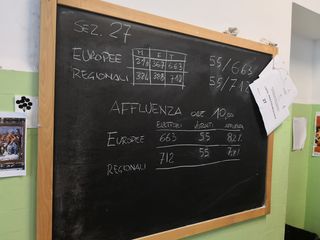 SEZ. 27
M F T
EUROPEE 663 55/663
REGIONALI 324 388 712 55/712
AFFLUENZA ORE 10,00
ELETTORI VOTANTI AFFLUENZA
EUROPEE 663 55 8,2%
REGIONALI 712 55 7,7%